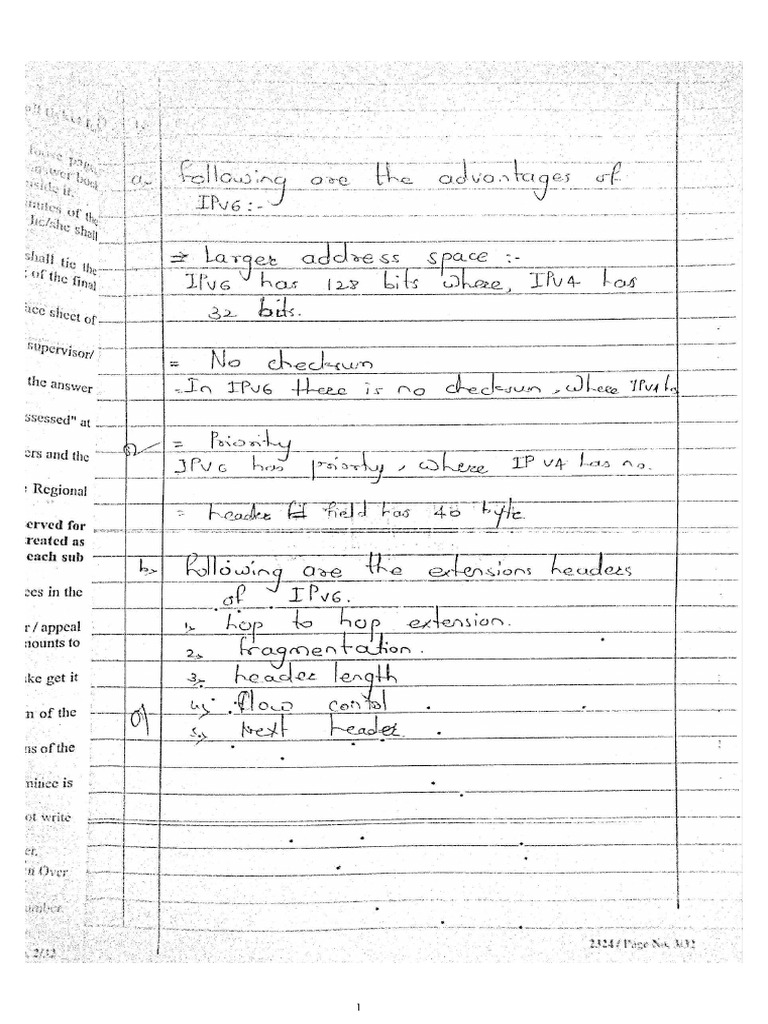 a.
Following are the advantages of
IPv6:-
⇒ Larger address space :-
IPv6 has 128 bits where, IPv4 has
32 bits.
= No checksun
= In IPv6 there is no checksun, where IPv4 h
= Priority
IPv6 has priorty, where IPv4 has no.
= header field has 40 byte.
b.
Following are the extensions headers
of IPv6.
1. hop to hop extension.
2. fragmentation.
3. header length
4. flow contol
5. Next header.
loose page
answer book
nside it.
nutes of the
He/she shall
shall tie the
of the final
ace sheet of
supervisor/
the answer
ssessed" at
ers and the
Regional
erved for
treated as
each sub
ees in the
r / appeal
nounts to
ke get it
n of the
ns of the
minee is
ot write
er.
n Over
umber.
2/32
2324 / Page No. 3/32
1